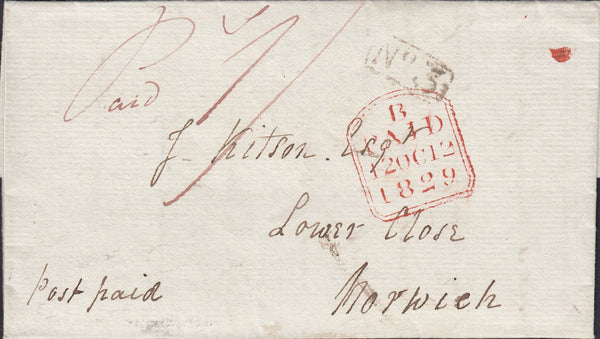 Paid
No. 3
B
PAID
12OC12
1829
J. Kitson. Esqr
Lower Close
Norwich
Post paid